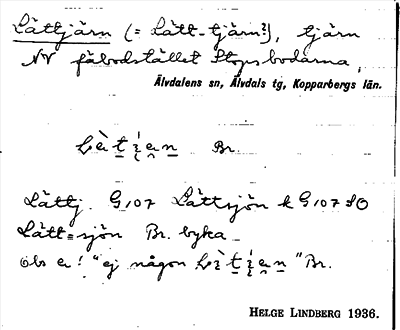 Lättjärn (= Lätt-tjärn?), tjärn
NV fäbodstället Stopsbodarna,
Älvdalens sn, Älvdals tg, Kopparbergs län.
Br.
Lättj. G107 Lättsjön k G107 SO
Lätt=sjön Br. byka
obs e! "ej någon "Br.
HELGE LINDBERG 1936.